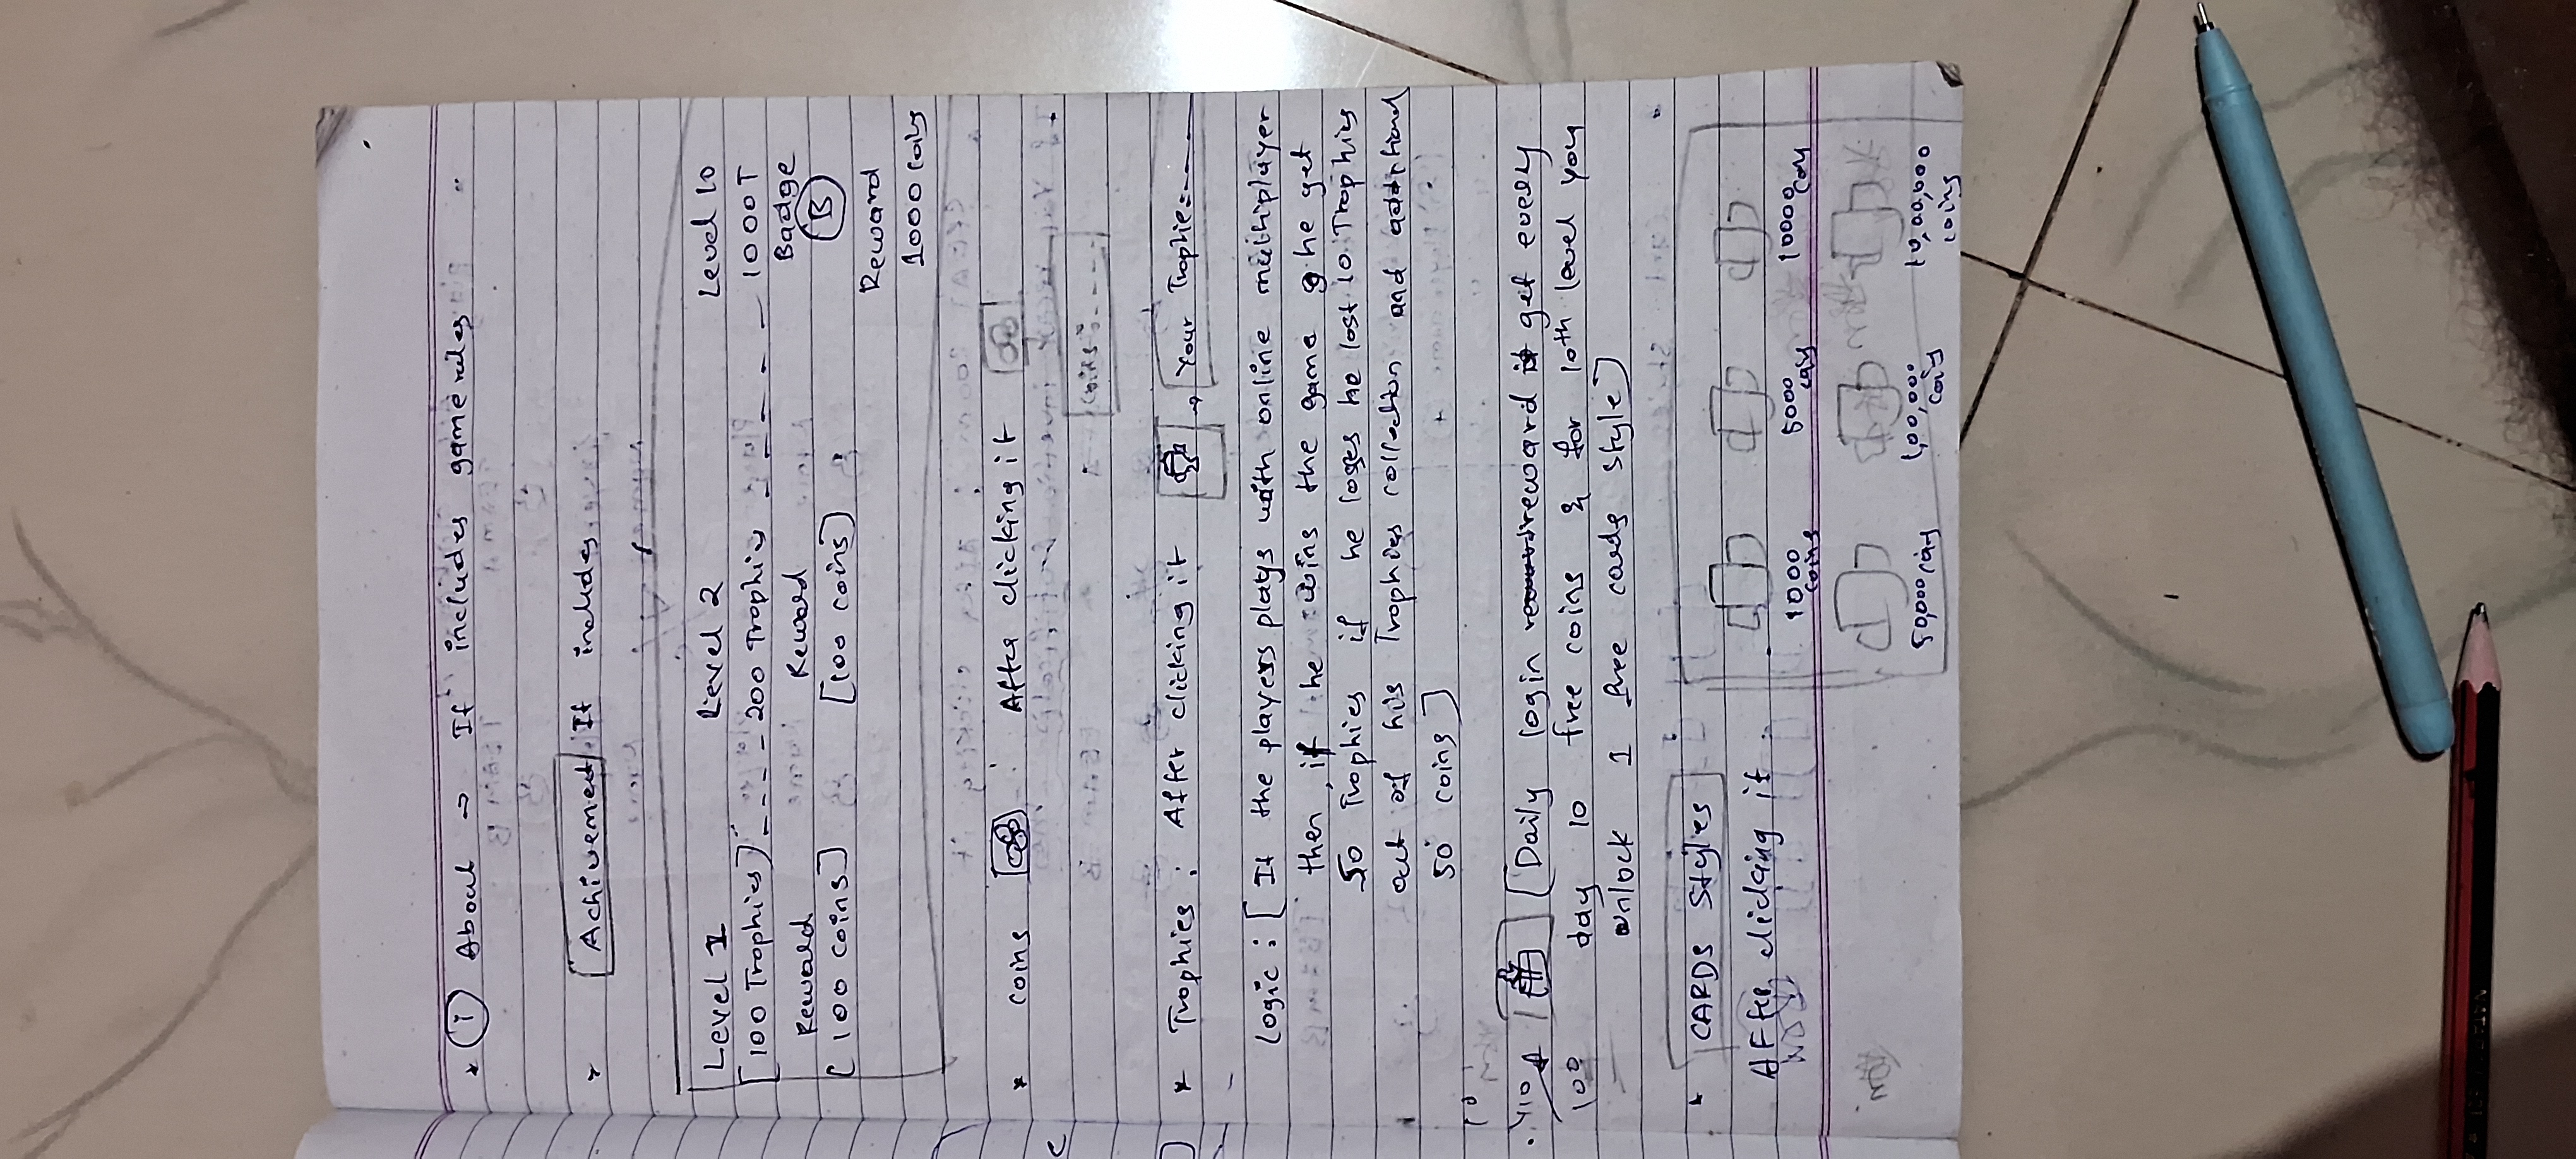 * i About → It includes game rules
* Achivement It includes
Level 1 Level 2 Level 10
[100 Trophies] - - - - 200 Trophies - - - - - 1000T
Badge
Reward Reward B
[100 coins] [100 coins]
Reward
1000 coins
* coins : After clicking it
coins : - - - -
* Trophies : After clicking it → Your Trophie : - - - -
Logic : [ If the players plays with online multiplayer
then, if he wins the game he get
50 Trophies if he losses he lost 10 Trophies
out of his Trophies collection and additional
50 coins ]
[ Daily login reward get every
100 day 10 free coins & for 10th level you
unlock 1 free cards style ]
* CARDS Styles
After clicking it
1000 coins 5000 coins 10000 coins
50,000 coins 1,00,000 coins 10,00,000 coins